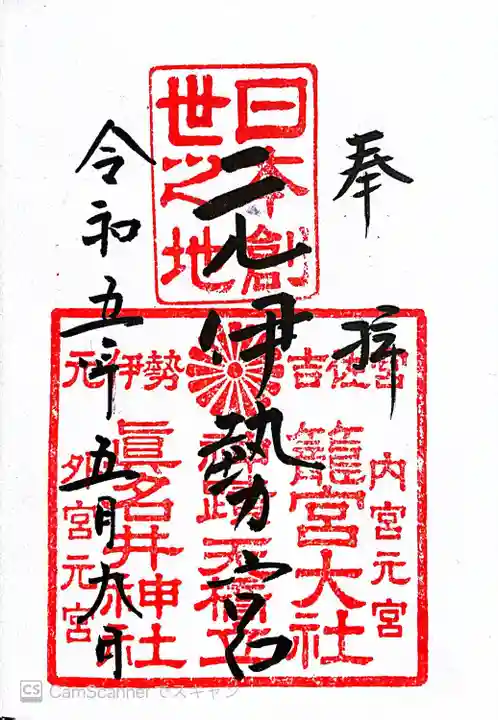 奉拝
日本創
世之地
元伊勢宮
吉佐宮
内宮元宮
籠宮大社
神跡天橋立
元伊勢
眞名井神社
外宮元宮
令和五年五月九日
CS CamScanner でスキャン